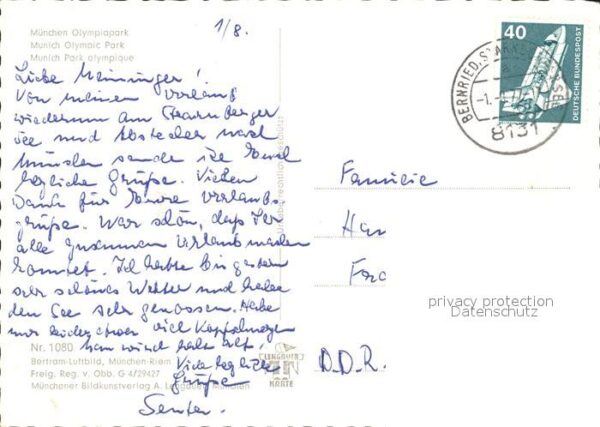 1/8.
München Olympiapark
Munich Olympic Park
Munich Park olympique
Liebe Meininger!
Von meinem Urlaub
wiederum am Starnberger
See und Abstecher nach
München sende ich Euch
herzliche Grüße. Vielen
Dank für Eure Urlaubs-
grüße. War schön, daß Ihr
alle zusammen Urlaub machen
konntet. Ich hatte bis gestern
sehr schönes Wetter und habe
den See sehr genossen. Habe
nur leider etwas viel Kopfschmerzen
man wird halt alt!
Viele herzliche
Grüße
Senta.
Nr. 1080
Bertram-Luftbild, München-Riem
Freig. Reg. v. Obb. G 4/29427
Münchener Bildkunstverlag A. Lengauer, München
LENGAUER
KARTE
40
DEUTSCHE BUNDESPOST
BERNRIED, STARNB
8131
Familie
Han
D.D.R.
privacy protection
Datenschutz